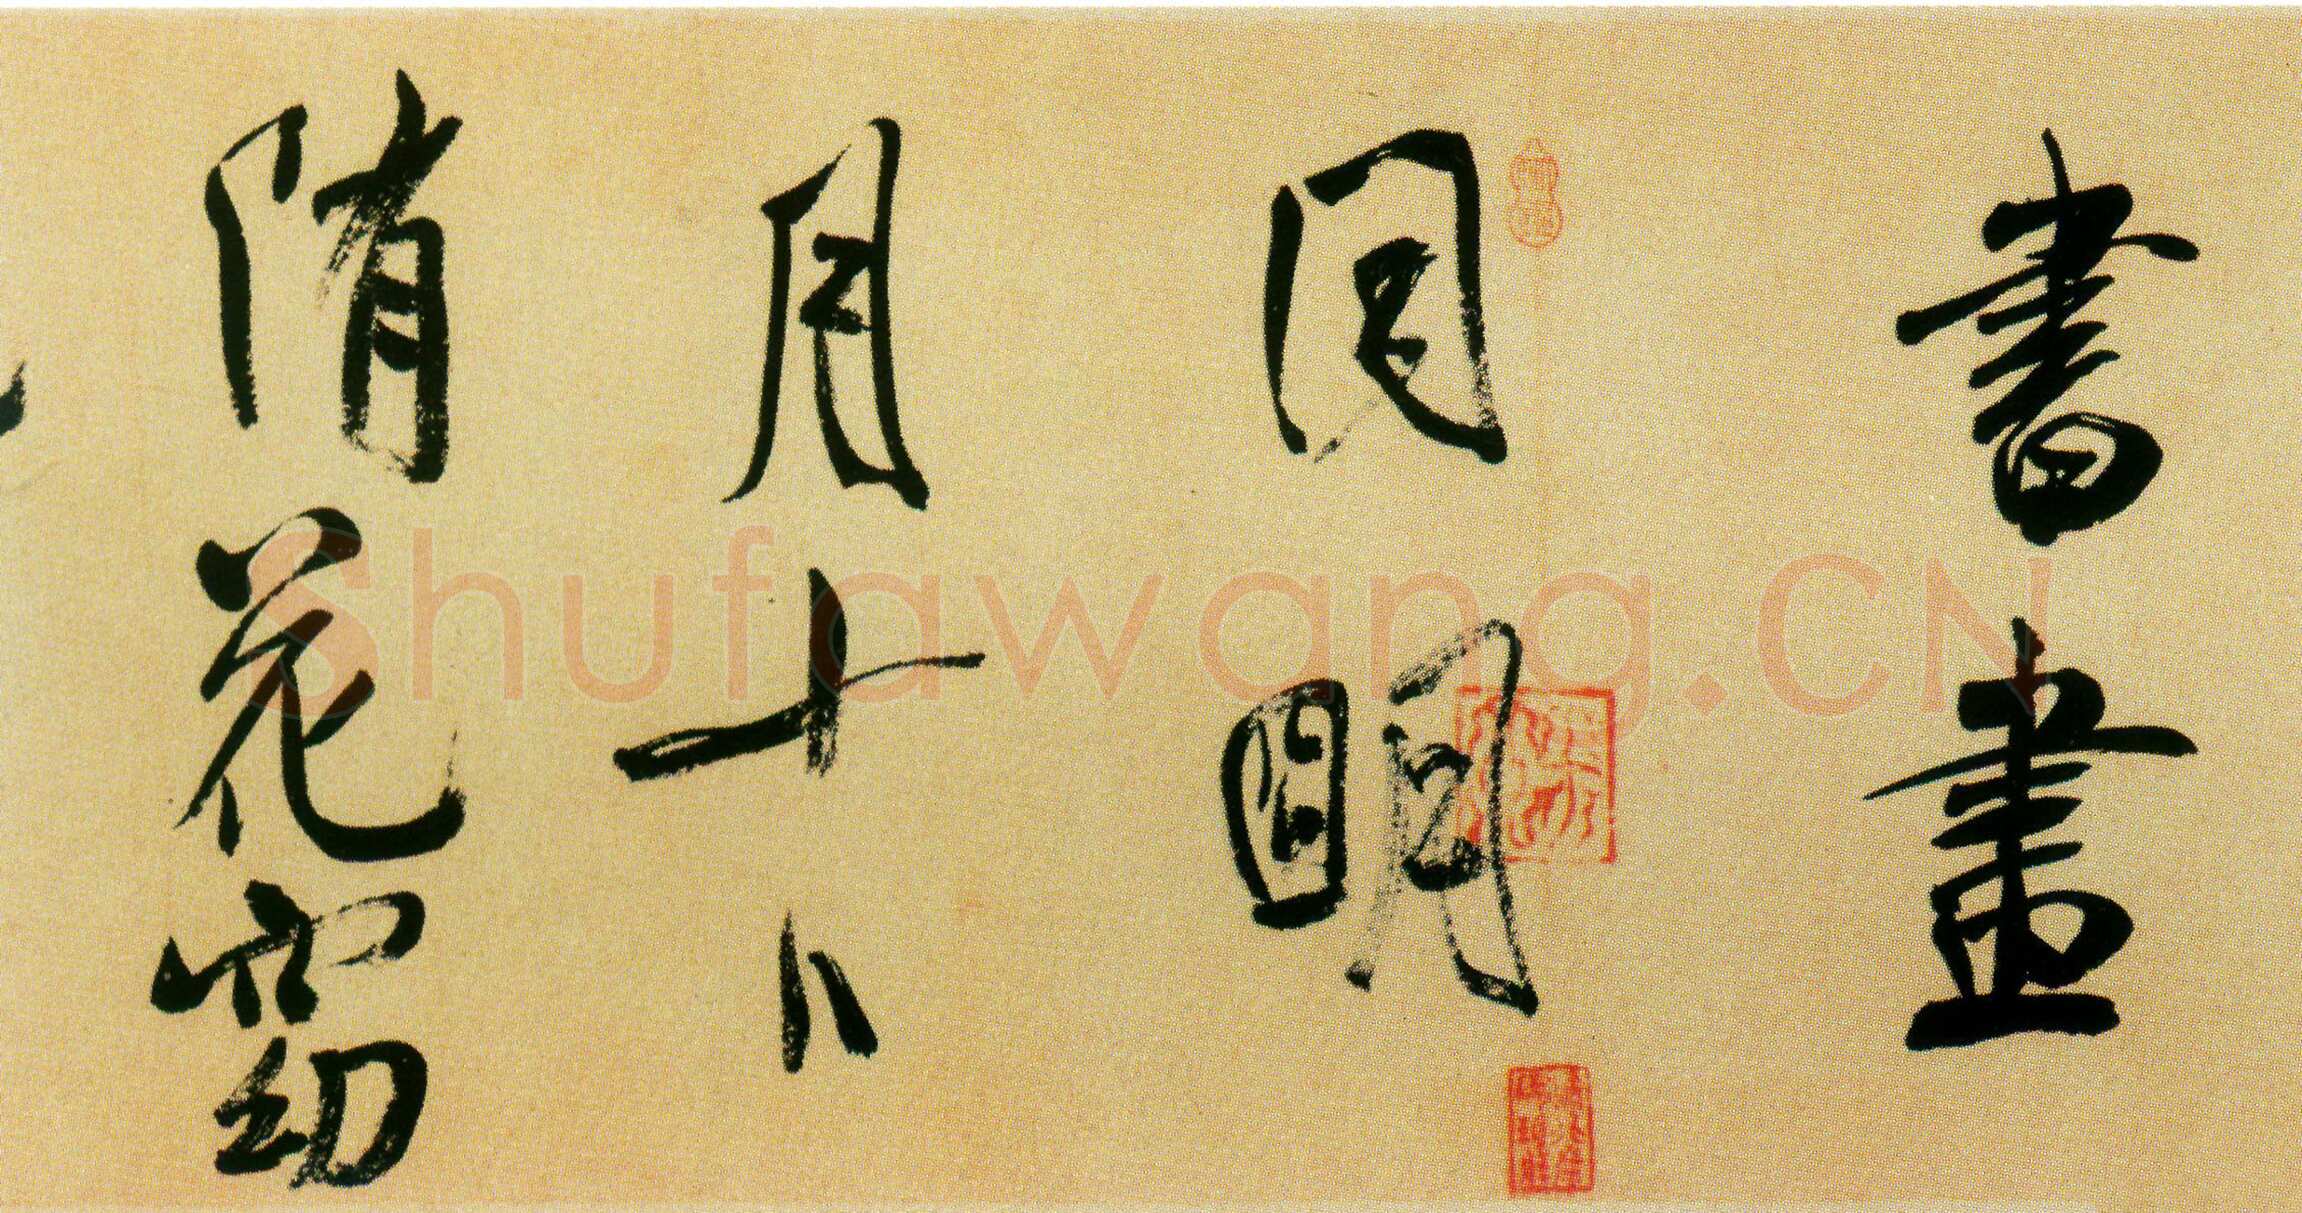 書畫
同明
月十日
隋花窈
Shufawang.CN